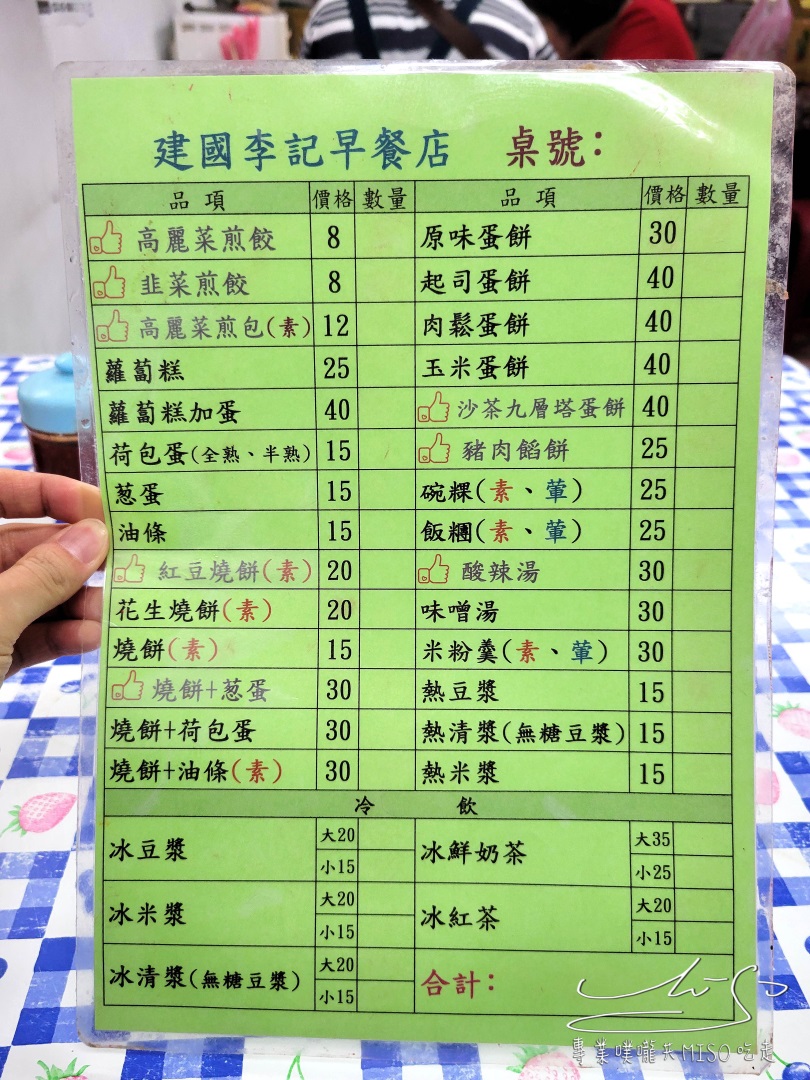 建國李記早餐店 桌號：
品項 價格 數量 品項 價格 數量
高麗菜煎餃 8 原味蛋餅 30
韭菜煎餃 8 起司蛋餅 40
高麗菜煎包(素) 12 肉鬆蛋餅 40
蘿蔔糕 25 玉米蛋餅 40
蘿蔔糕加蛋 40 沙茶九層塔蛋餅 40
荷包蛋(全熟、半熟) 15 豬肉餡餅 25
葱蛋 15 碗粿(素、葷) 25
油條 15 飯糰(素、葷) 25
紅豆燒餅(素) 20 酸辣湯 30
花生燒餅(素) 20 味噌湯 30
燒餅(素) 15 米粉羹(素、葷) 30
燒餅+葱蛋 30 熱豆漿 15
燒餅+荷包蛋 30 熱清漿(無糖豆漿) 15
燒餅+油條(素) 30 熱米漿 15
冷飲
冰豆漿 大20 小15 冰鮮奶茶 大35 小25
冰米漿 大20 小15 冰紅茶 大20 小15
冰清漿(無糖豆漿) 大20 小15 合計：
專業噗嚨共MISO吃走